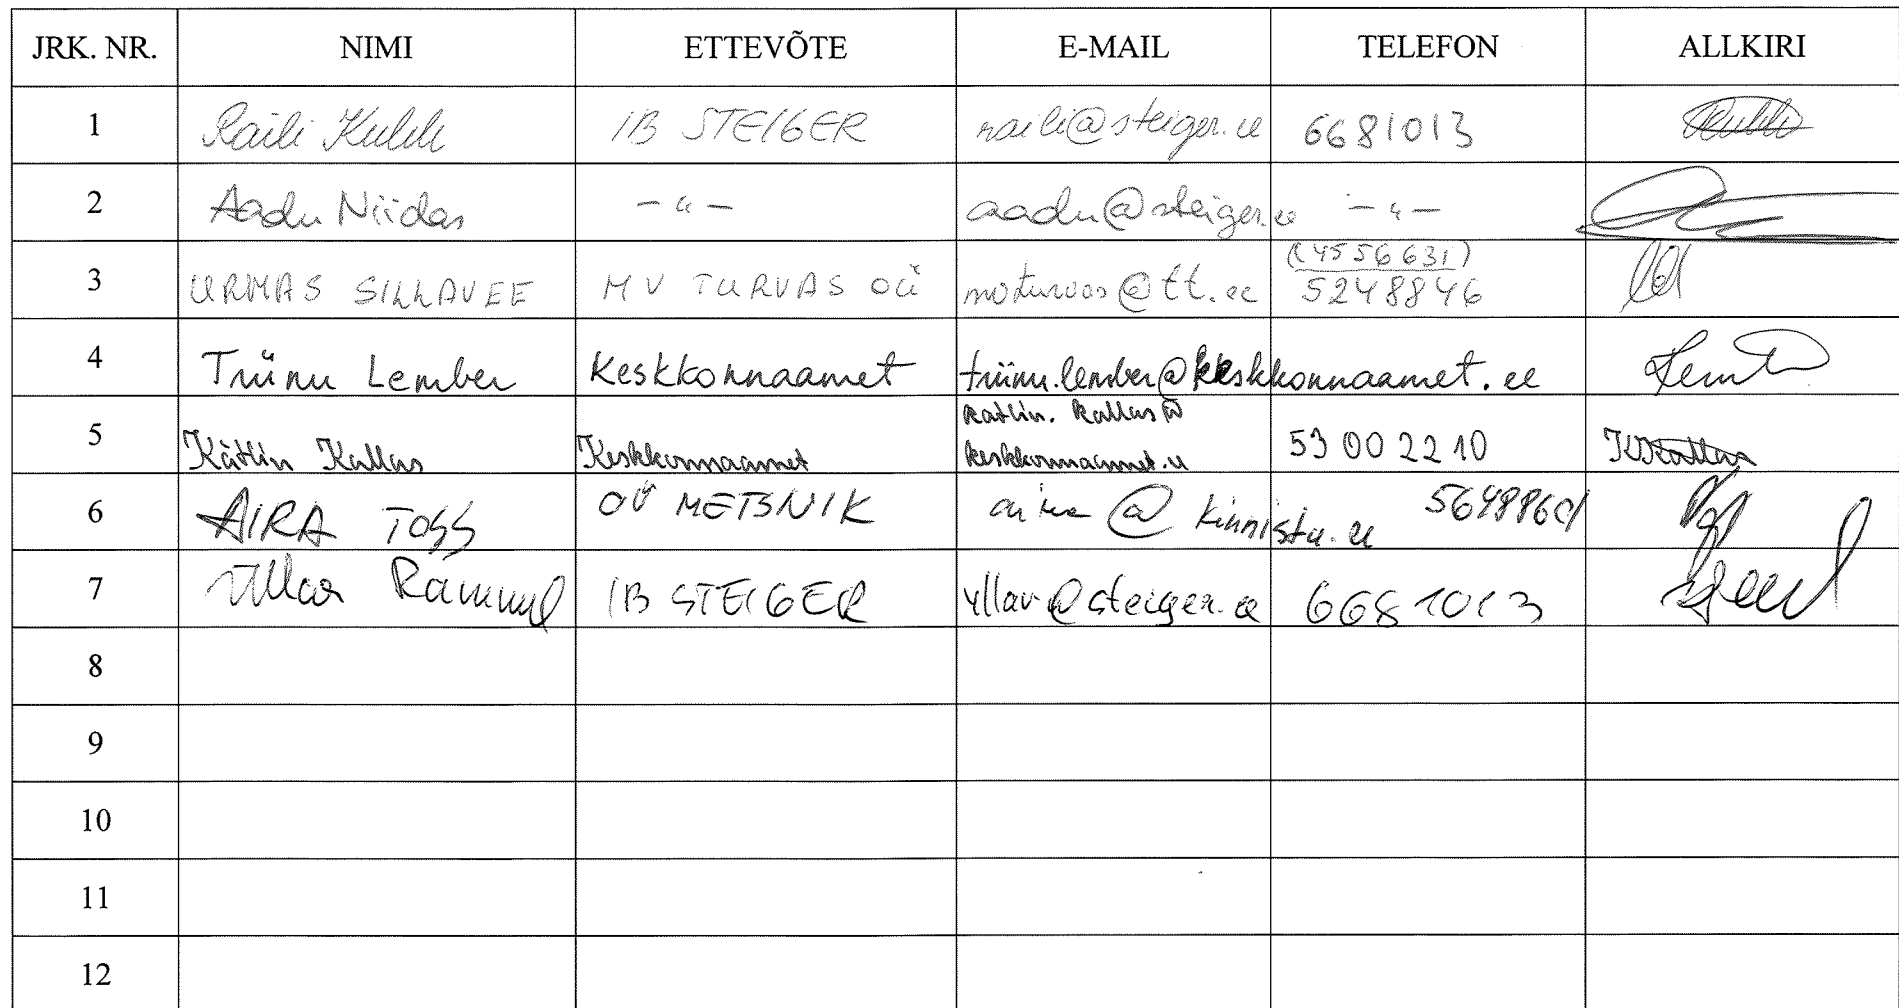 JRK. NR. NIMI ETTEVÕTE E-MAIL TELEFON ALLKIRI
1 Raili Kukk IB STEIGER raili@steiger.ee 6681013
2 Aadu Niidas — " — aadu@steiger.ee — " —
3 URMAS SILLAVEE MV TURVAS OÜ @tt.ee (4556631)
5248846
4 Triinu Lember Keskkonnaamet triinu.lember@keskkonnaamet.ee
katlin.kallas@
5 Kätlin Kallas Keskkonnaamet keskkonnaamet.ee 53 00 22 10 KKallas
6 AIRA TOSS OÜ METSNIK aira@kinnistu.ee
7 Üllar Rammul IB STEIGER yllar@steiger.ee 6681013
8
9
10
11
12